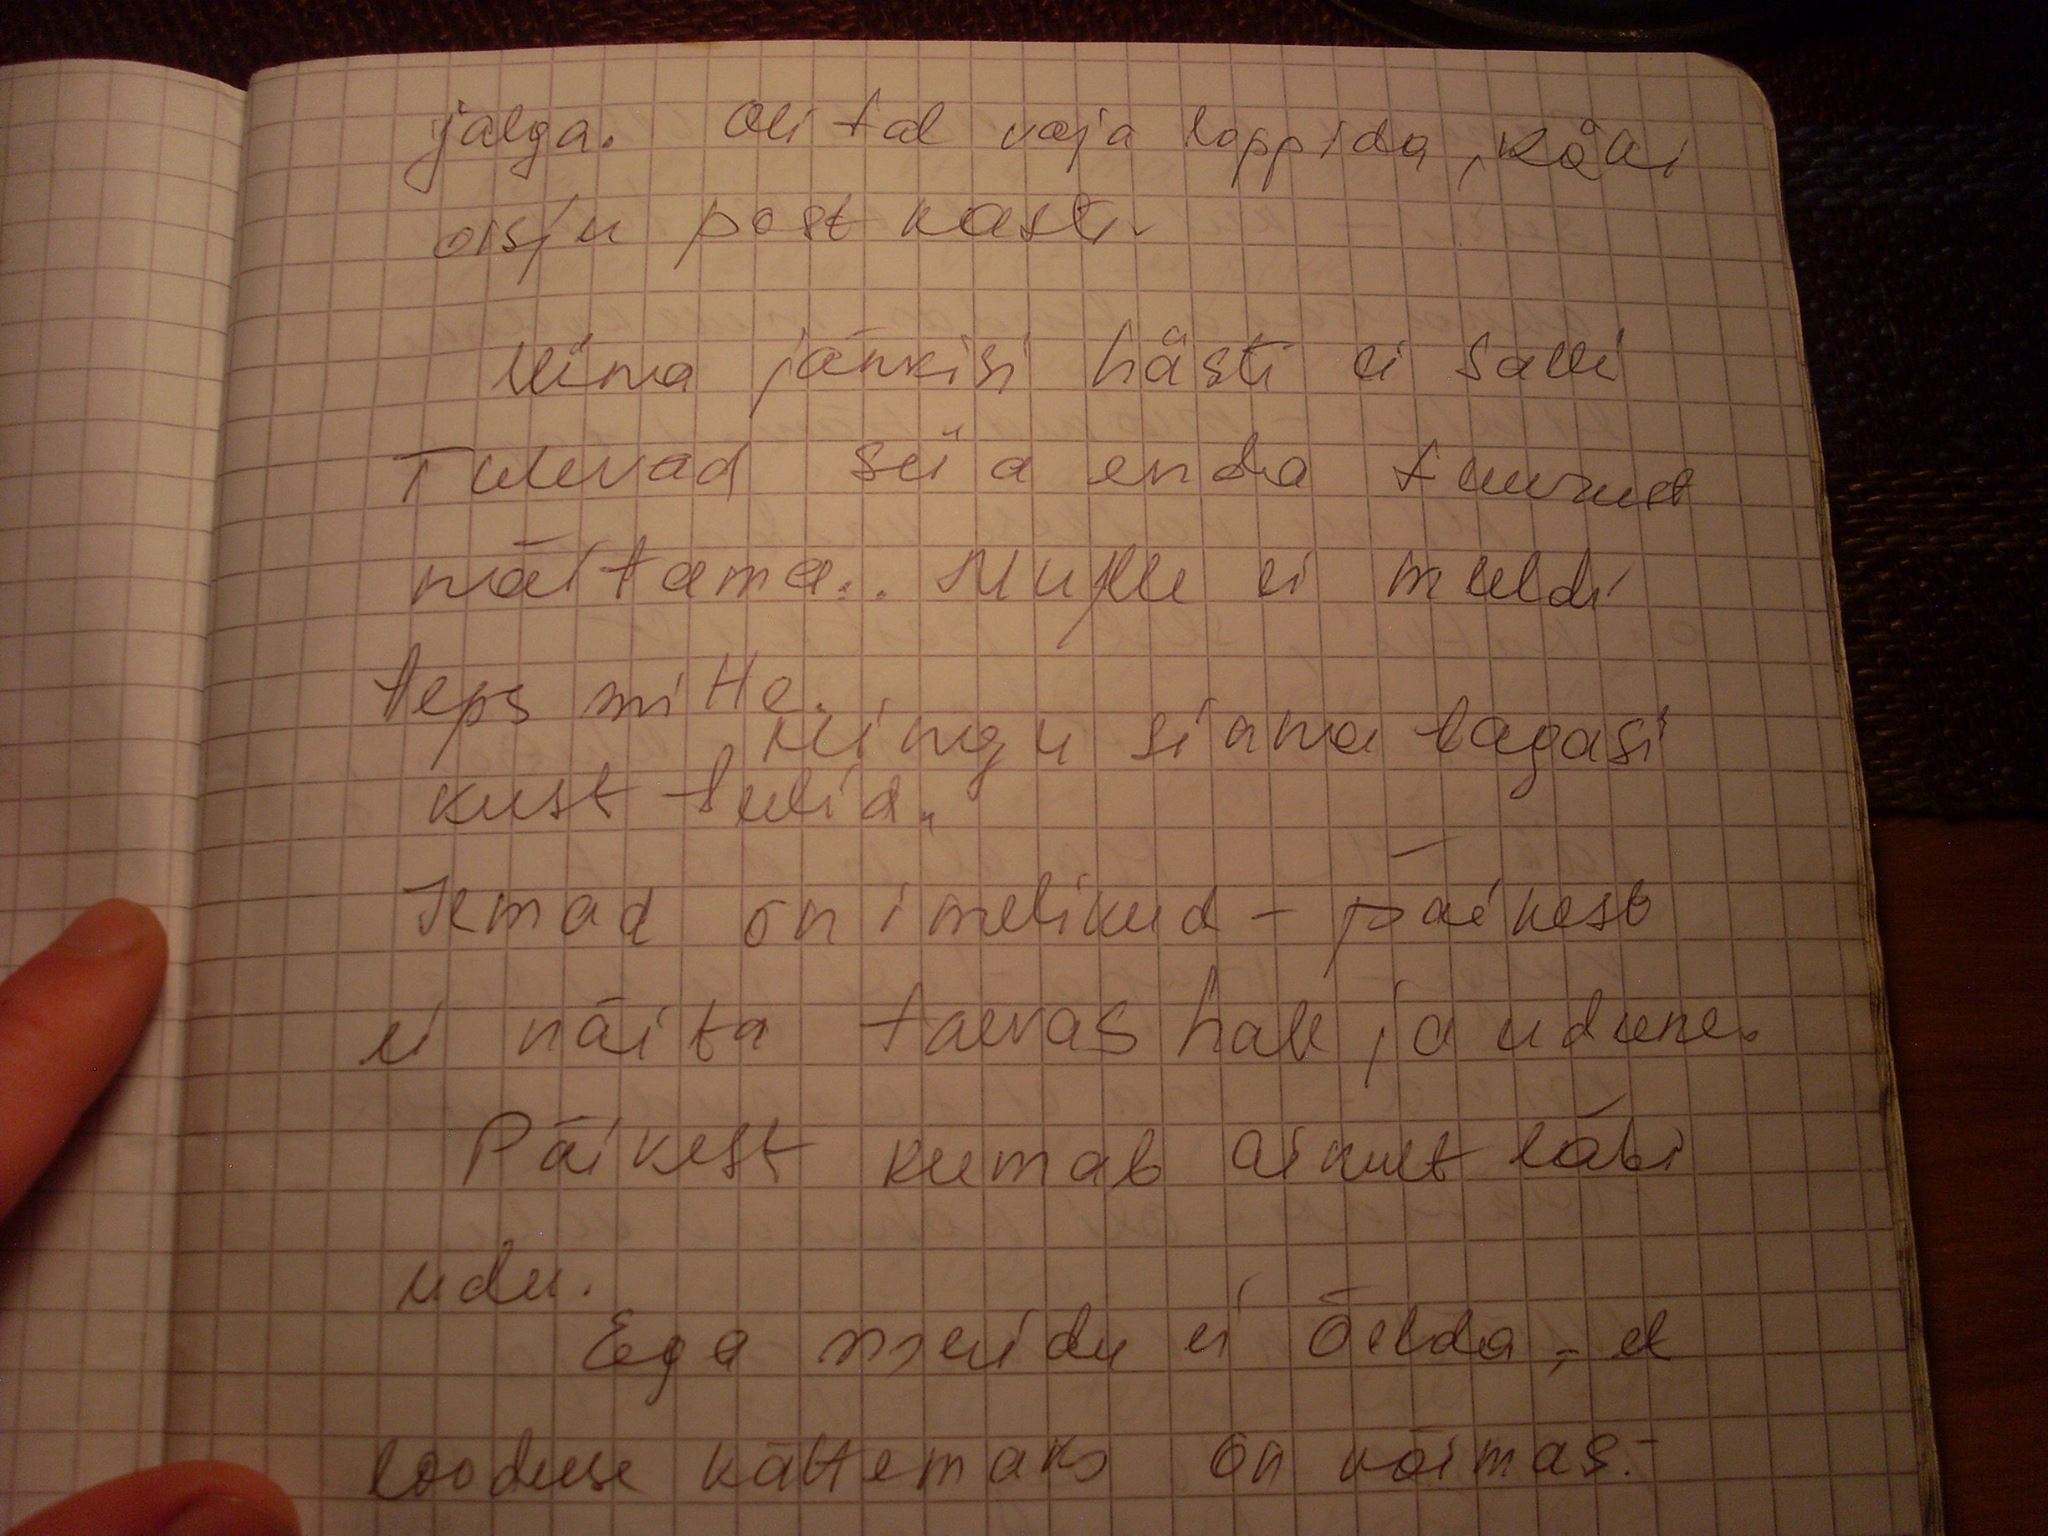 jalga. Oli tal vaja loppida, Kõlli
ossju postkasti.
Mina jänkisi hästi ei salli
Tulevad siia enda tuumust
näitama.. Mulle ei meeldi
teps mitte.
Mingu sinna tagasi
kust tulid.
Ilmad on imelikud - päikest
ei näita taevas hall ja udune.
Päikest kumab ainult läbi
udu.
Ega muidu ei öelda, et
looduse kättemaks on võimas.-